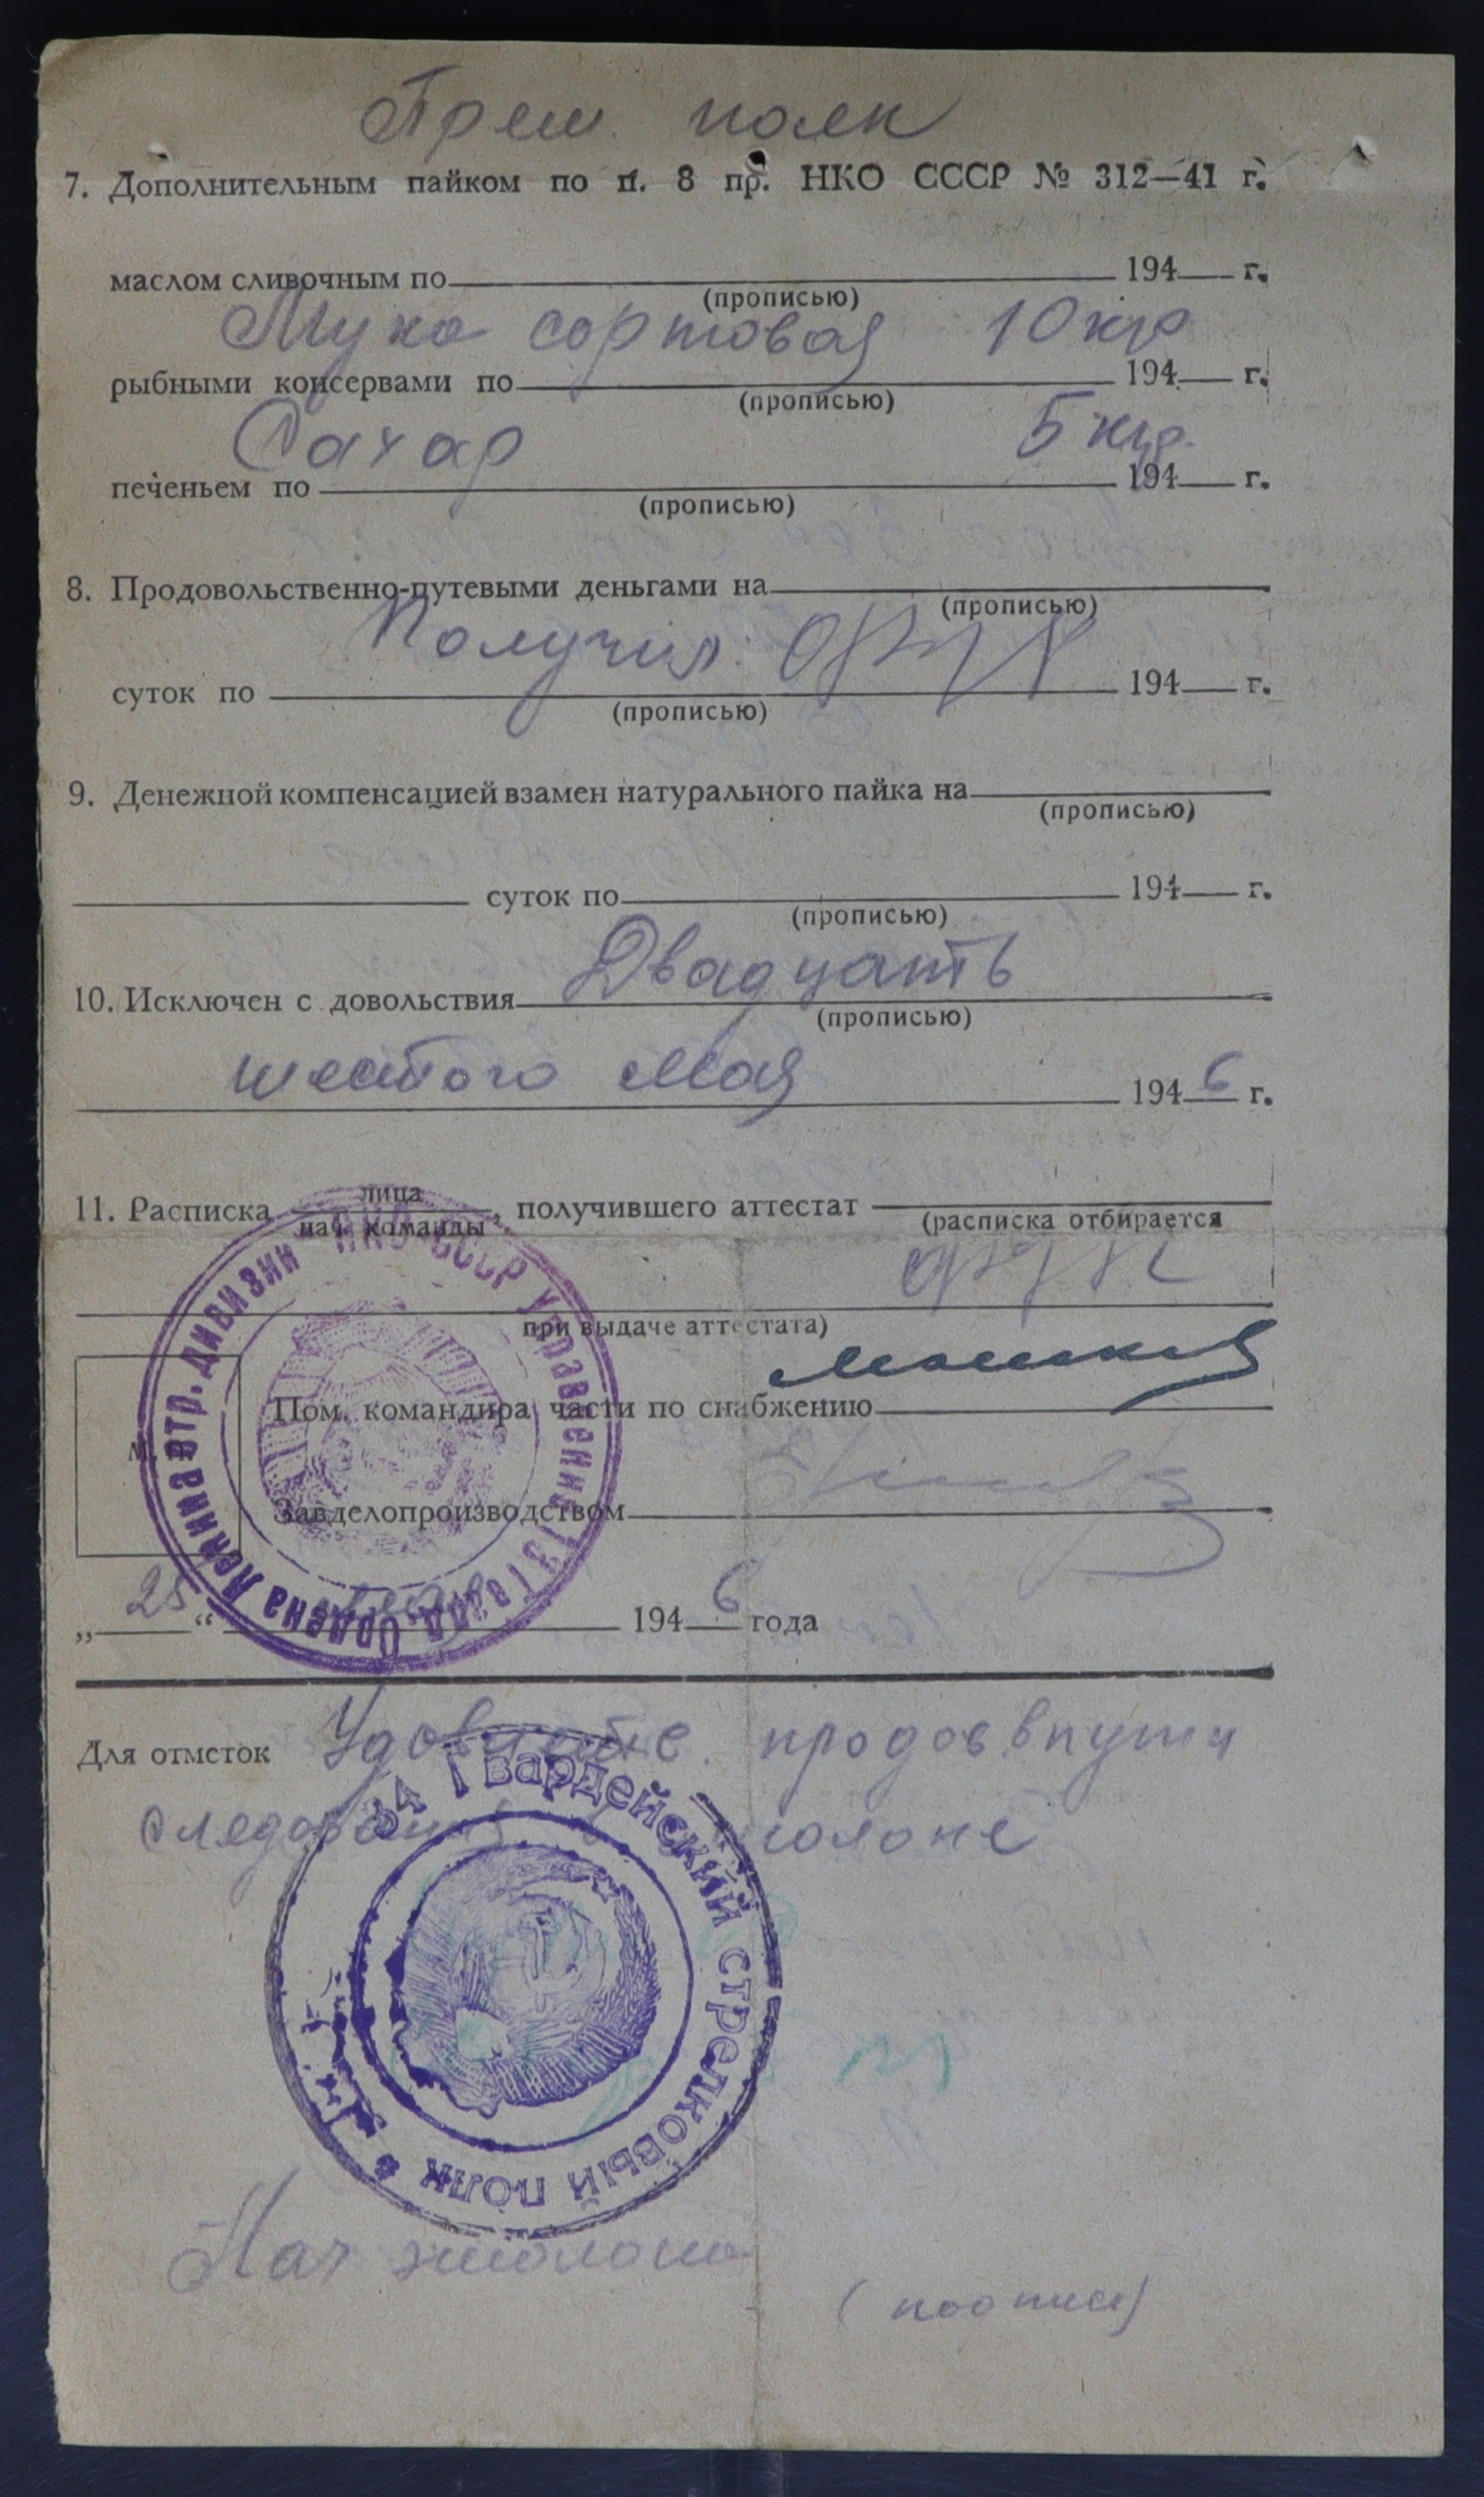 Прем. паек
7. Дополнительным пайком по п. 8 пр. НКО СССР № 312—41 г.
маслом сливочным по 194 г.
(прописью)
Мука сортовая 10 кгр
рыбными консервами по 194 г.
(прописью)
Сахар 5 кгр.
печеньем по 194 г.
(прописью)
8. Продовольственно-путевыми деньгами на
(прописью)
Получил:
суток по 194 г.
(прописью)
9. Денежной компенсацией взамен натурального пайка на
(прописью)
суток по 194 г.
(прописью)
10. Исключен с довольствия Двадцать
(прописью)
шестого мая 1946 г.
11. Расписка лица, получившего аттестат
нач. команды (расписка отбирается
при выдаче аттестата)
Пом. командира части по снабжению
М.
Завделопроизводством
„25“ мая 1946 года
НКО СССР Управление Гвард. Ордена Ленина стр. дивизии
Для отметок продов. в пути
Гвардейский стрелковый полк
Нач эшелона
(подпись)